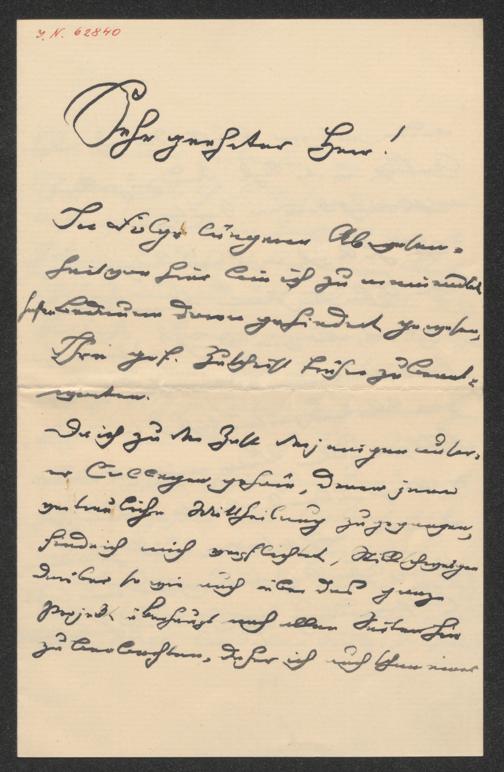 J. N. 62840
Sehr geehrter Herr!
In Folge längerer Abwesen-
heit von hier bin ich zu meinem
lebhaften Bedauern daran gehindert gewesen,
Ihre gef. Zuschrift früher zu beant-
worten.
Da ich zu der Zahl derjenigen unter
er Collegen gehöre, denen jene
vertrauliche Mittheilung zugegangen,
finde ich mich verpflichtet, Stillschweigen
darüber so wie auch über das ganze
Projekt überhaupt nach allen Seiten hin
zu beobachten, daher ich auch Ihnen